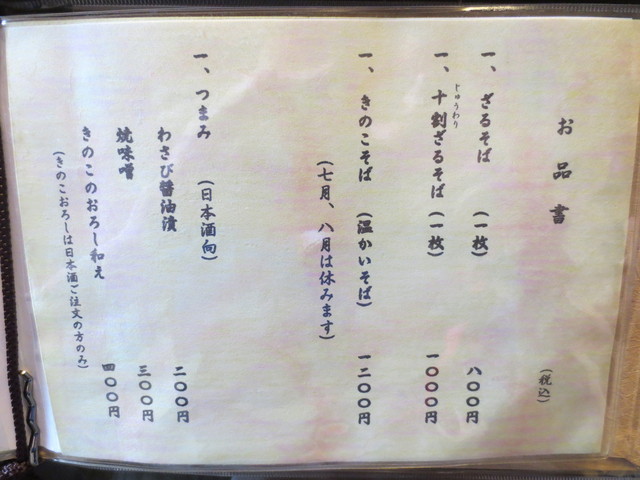 お品書
(税込)
一、ざるそば (一枚) 八〇〇円
じゅうわり
一、十割ざるそば (一枚) 一〇〇〇円
一、きのこそば (温かいそば) 一二〇〇円
(七月、八月は休みます)
一、つまみ (日本酒向)
わさび醤油漬 二〇〇円
焼味噌 三〇〇円
きのこのおろし和え 四〇〇円
(きのこおろしは日本酒ご注文の方のみ)